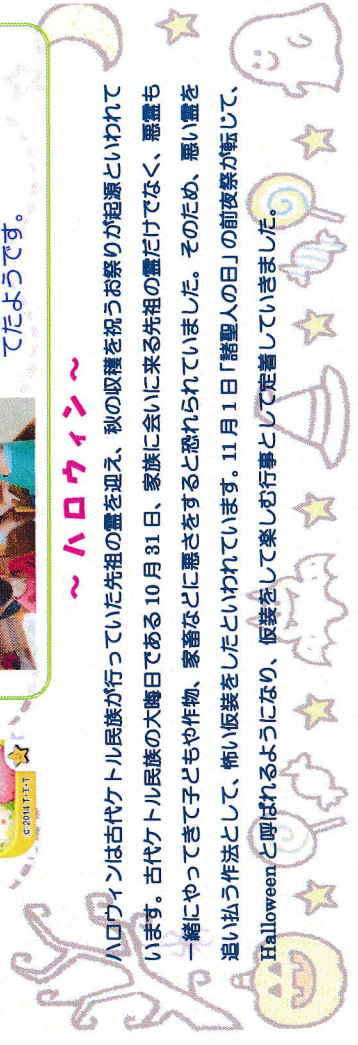 てたようです。
©2014 T・T・T
～ハロウィン～
ハロウィンは古代ケトル民族が行っていた先祖の霊を迎え、秋の収穫を祝うお祭りが起源といわれて
います。古代ケトル民族の大晦日である10月31日、家族に会いに来る先祖の霊だけでなく、悪霊も
一緒にやってきて子どもや作物、家畜などに悪さをすると恐れられていました。そのため、悪い霊を
追い払う作法として、怖い仮装をしたといわれています。11月1日「諸聖人の日」の前夜祭が転じて、
Halloweenと呼ばれるようになり、仮装をして楽しむ行事として定着していきました。